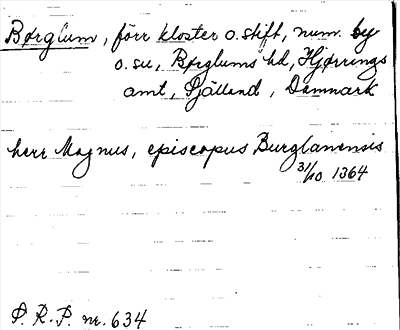 Børglum, förr kloster o. stift, num. by
o. su, Børglums hd, Hjørrings
amt, Själland, Danmark
herr Magnus, episcopus Burglanensis
31/10 1364
P. R. P. nr. 634